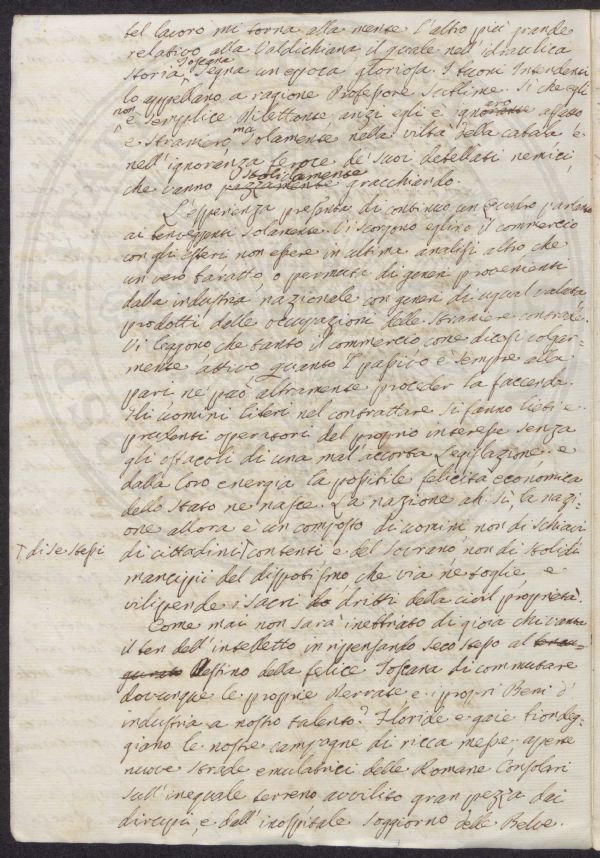 tel lavoro mi torna alla mente l'altro più grande
relativo alla Valdichiana, il quale nell'idraulica
Storia Toscana segna un epoca gloriosa. I buoni Intendenti
lo appellano a ragione Professore Sublime. Si che egli
non è semplice Dilettante, anzi egli è affatto
e straniero, ma solamente nella viltà della cabala e
nell'ignoranza feroce de' suoi debellati nemici
che vanno pazzamente stolidamente gracchiando.
L'esperienza presenta di continuo un quadro parlante
ai benveggenti solamente. Vi scorgono eglino il commercio
con gli esteri non essere in ultima analisi altro che
un vero baratto, o permuta di generi provenienti
dalla industria nazionale con generi di ugual valuta
prodotti dalle occupazioni delle straniere contrade.
Vi leggono che tanto il commercio come dicesi volgar-
mente attivo quanto il passivo è sempre alla
pari, ne può altramente proceder la faccenda.
Gli uomini liberi nel contrattare si fanno lieti e
prudenti operatori del proprio interesse senza
gli ostacoli di una mal'accorta Legislazione, e
dalla loro energia la possibile felicità economica
dello Stato ne nasce. La nazione ah si, la nazi-
one allora è un composto di uomini non di schiavi
di cittadini contenti di se stessi e del Sovrano, non di stolidi
mancipii del dispotismo, che via ne toglie, e
vilipende i sacri dritti della civil proprietà.
Come mai non sarà inebriato di gioia chi vanta
il ben dell'intelletto in ripensando seco stesso al
destino della felice Toscana di commutare
dovunque le proprie Derrate e i propri Beni d'
industria a nostro talento? Floride e gaie biondeg-
giano le nostre campagne di ricca messe, aperte
nuove strade emulatrici delle Romane Consolari
sull'ineguale terreno avvilito gran pezza dai
dirupi, e dall'inospitale soggiorno delle Belve.